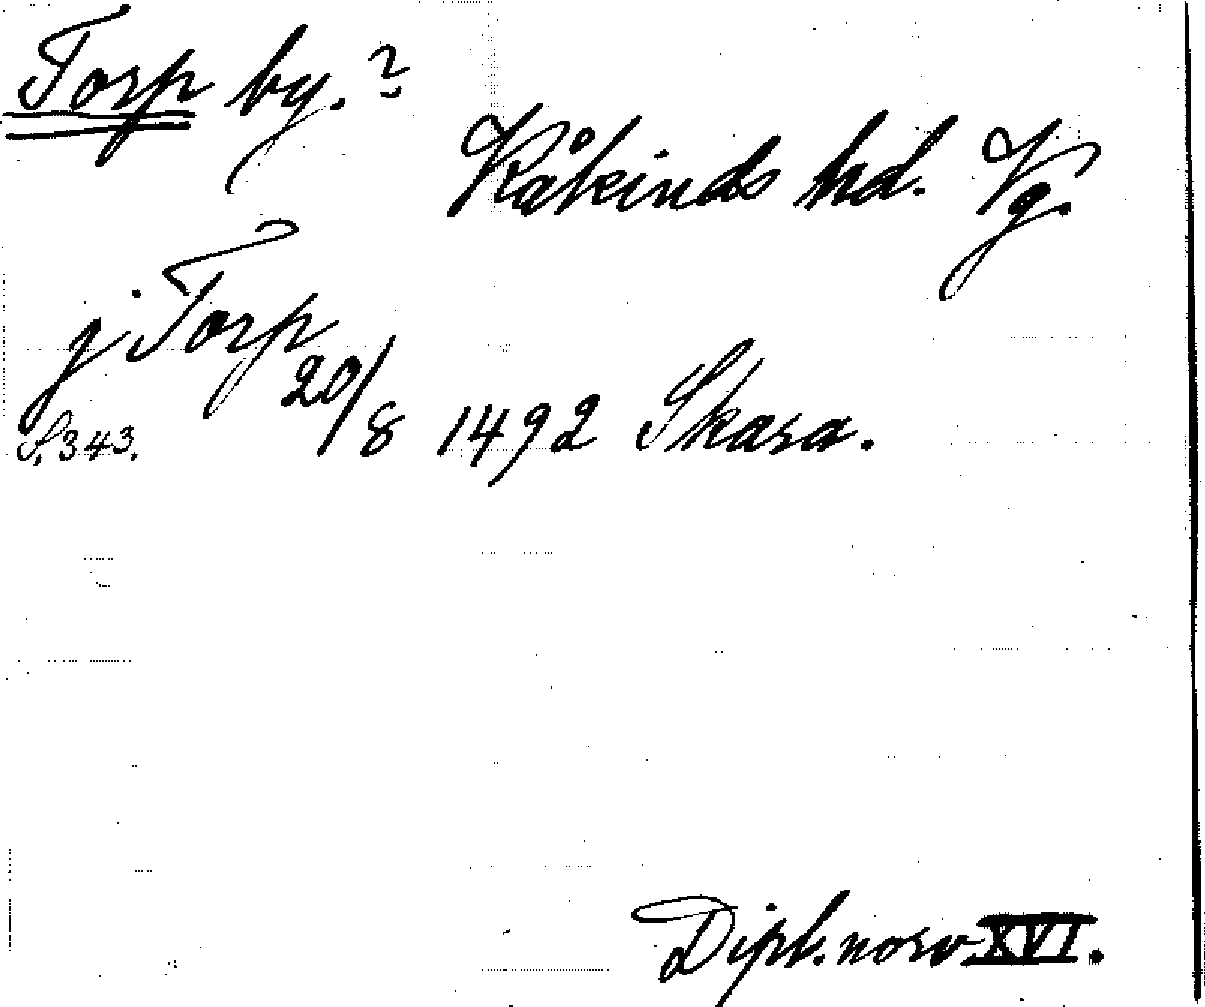 Torp by. ?
Kåkinds hd. Vg.
j Torp
20/8 1492 Skara.
S. 343.
Dipl. norv XVI.